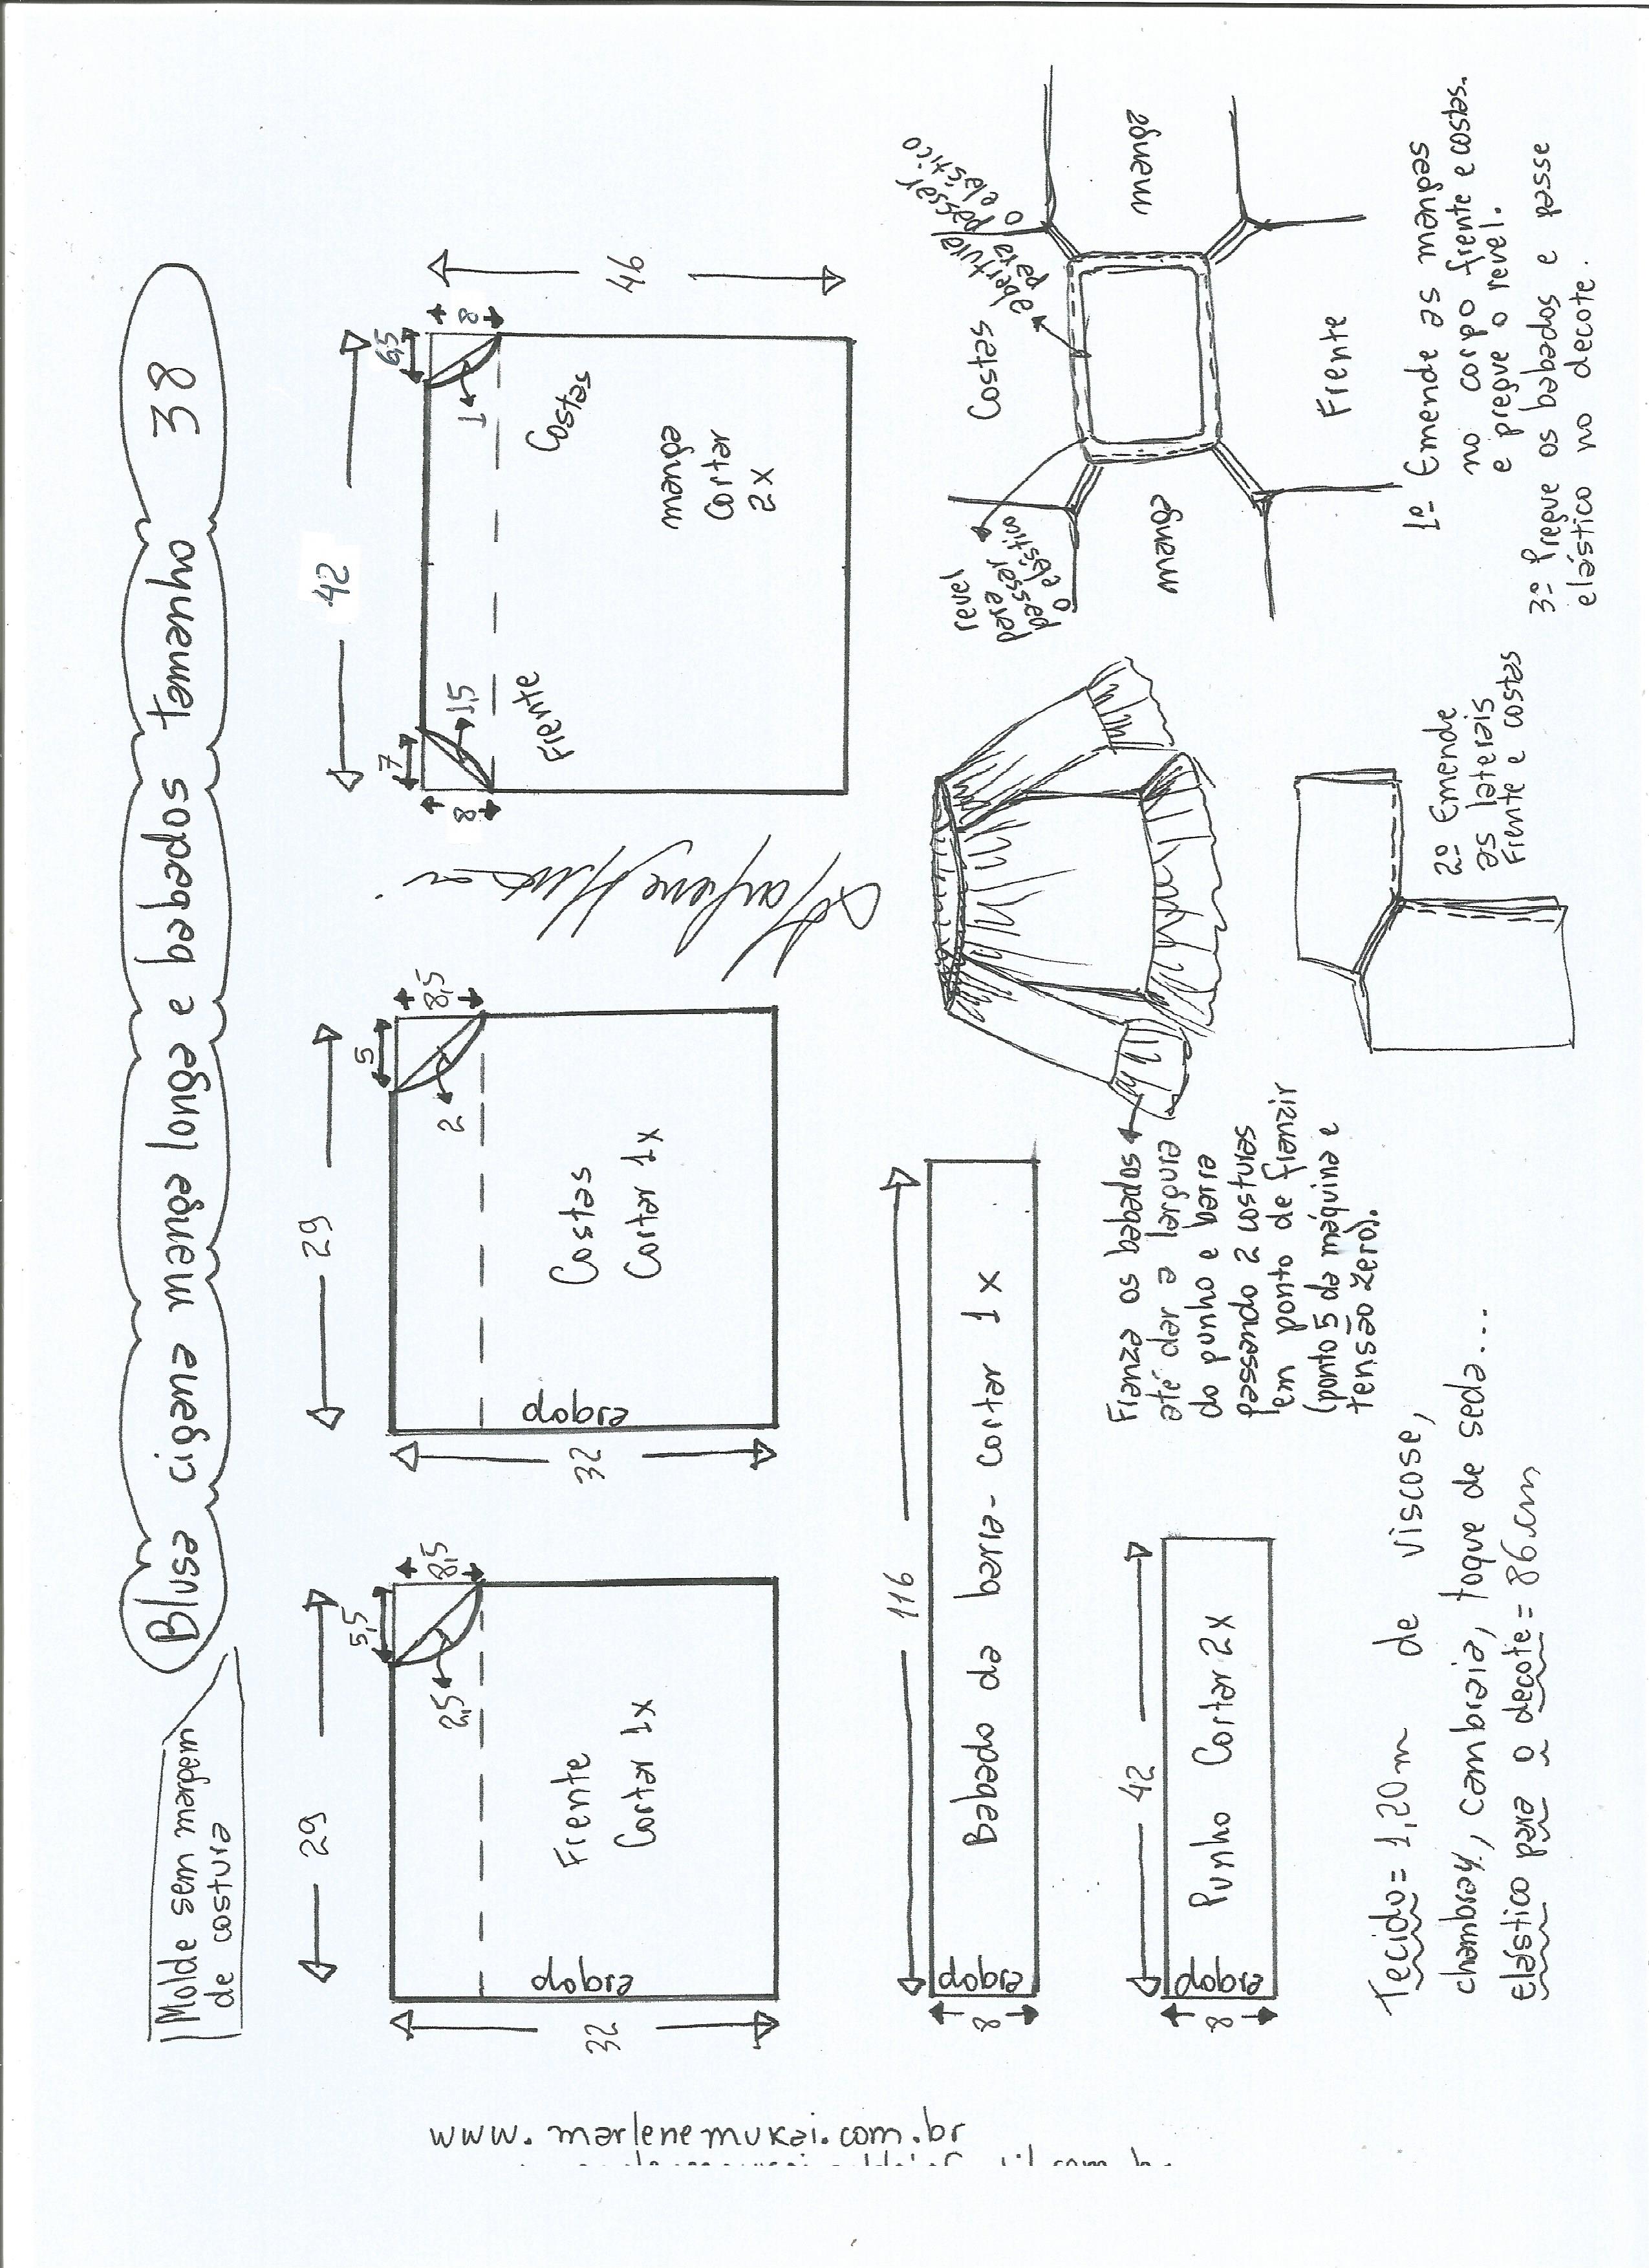 Molde sem margem
de costura
Blusa cigana manga longa e babados tamanho 38
29
5,5
8,5
2,5
32
dobra
Frente
Cortar 1x
29
5
8,5
2
32
dobra
Costas
Cortar 1x
42
7
8
1,5
Frente
6,5
8
1
Costas
46
manga
Cortar
2x
Marlene Mukai
116
8
dobra
Babado da barra - cortar 1x
42
8
dobra
Punho Cortar 2x
Franza os babados
até dar a largura
do punho e barra
passando 2 costuras
em ponto de franzir
(ponto 5 da máquina e
tensão zero).
Tecido = 1,20m de viscose,
chambray, cambraia, toque de seda...
elástico para o decote = 86 cm
revel
para
passar
o elástico
Costas
abertura
para passar
o elástico
manga
manga
Frente
1º- Emende as mangas
no corpo frente e costas.
e pregue o revel.
2º Emende
as laterais
Frente e costas
3º Pregue os babados e passe
elástico no decote.
www.marlenemukai.com.br